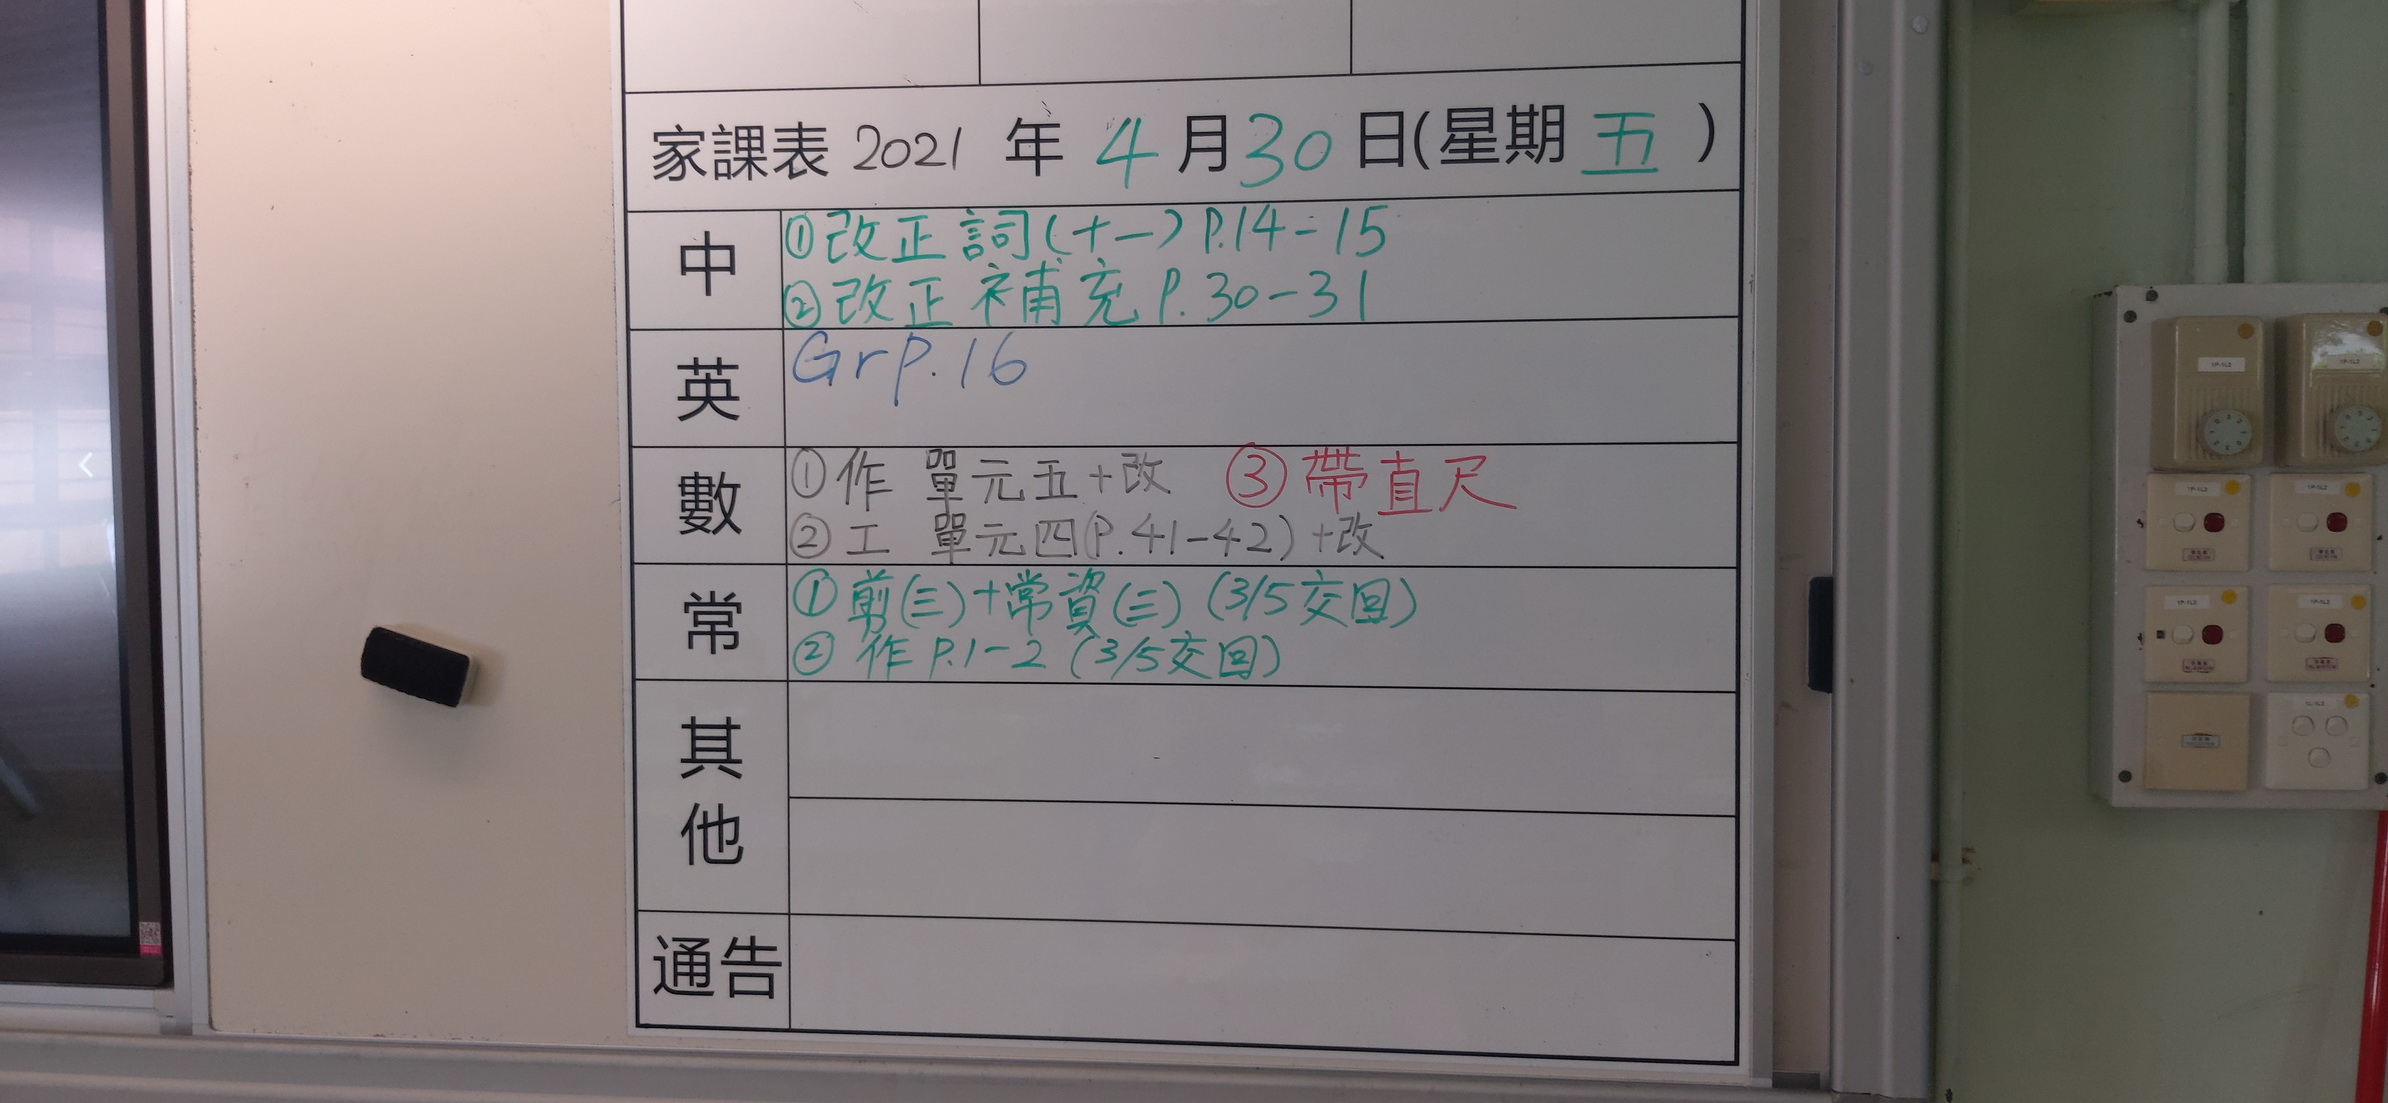 家課表 2021 年 4 月 30 日(星期 五 )
中
①改正 詞(十一) P.14-15
②改正 補充 P.30-31
英
Gr P.16
數
①作 單元五+改 ③帶直尺
②工 單元四(P.41-42)+改
常
①剪(三)+常資(三) (3/5交回)
② 作 P.1-2 (3/5交回)
其他
通告